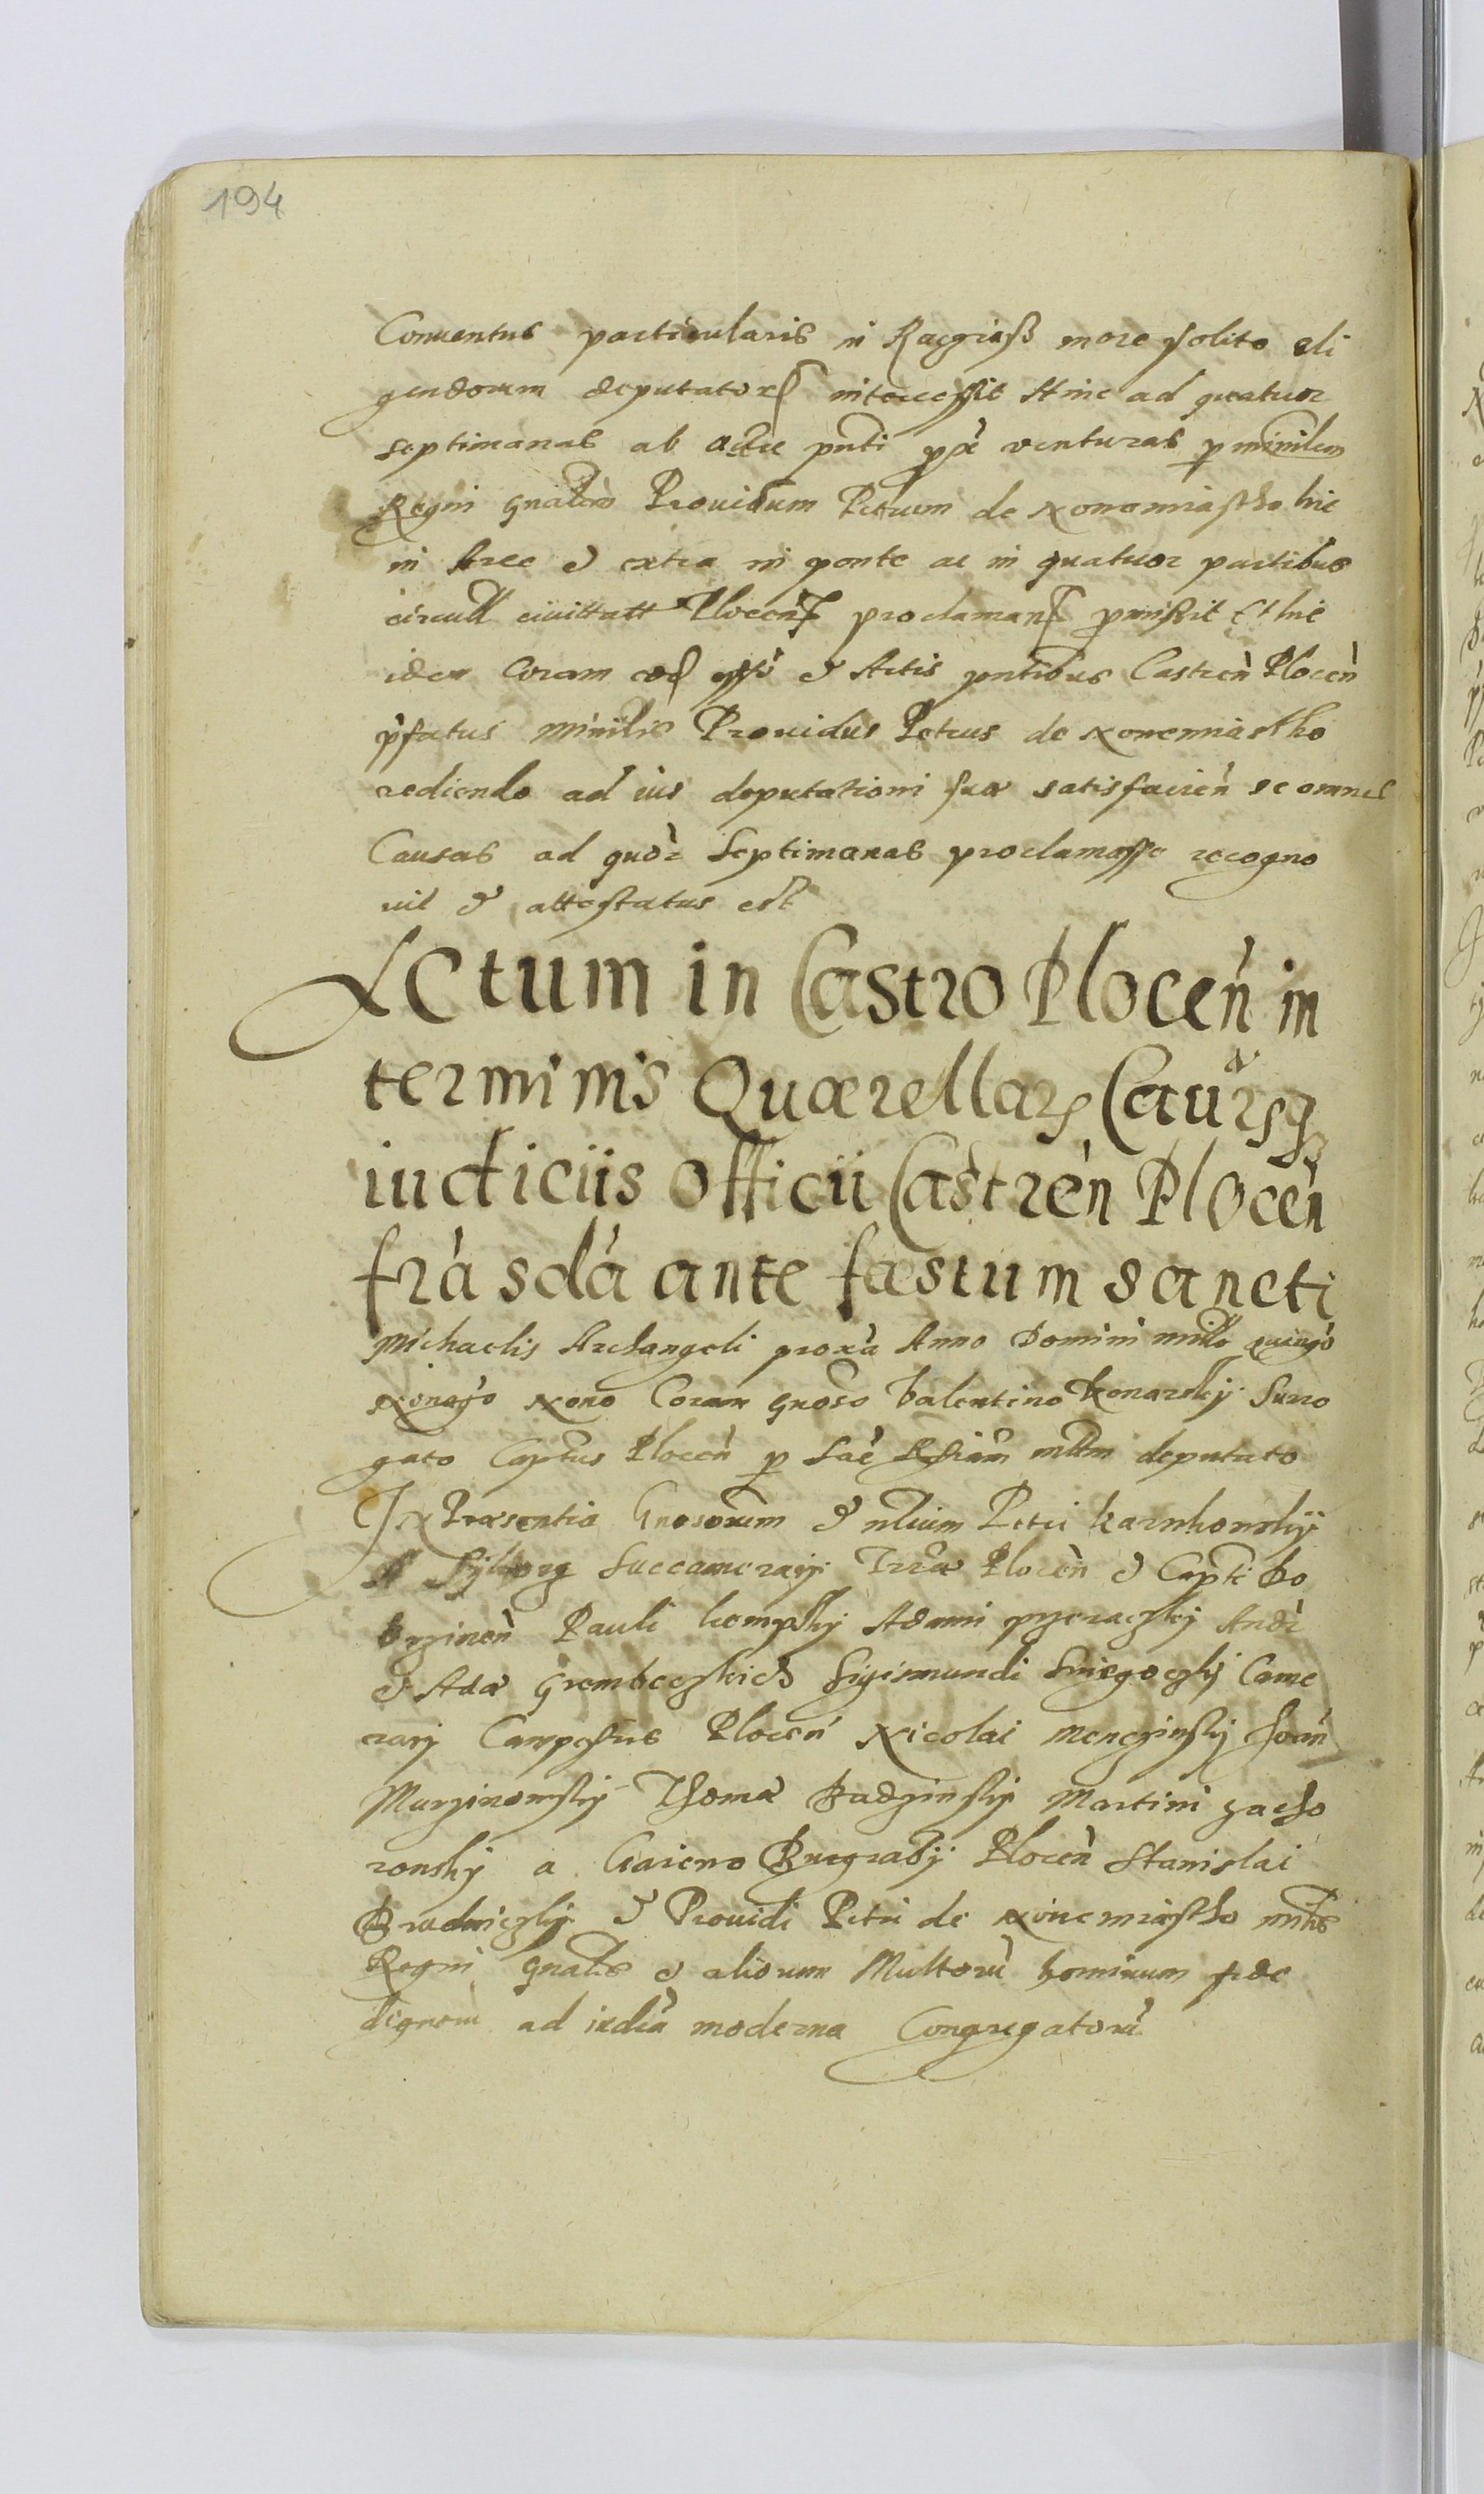 194
Conuentus particularis in Racziąsz more solito eli
gendorum deputator intercessit Hinc ad quatuor
septimanas ab actu pnti venturas p minilem
Regni gnalem Prouidum Petrum de Nonomiastho hic
in Arce & extra in ponte ac in quatuor partibus
circuli ciuittatt Plocen proclamans pmisit Et hic
idem Coram & Actis pntibus Castren Plocen
pfatus minilis Prouidus Petrus de Nonemiastho
rediendo ad ius deputationi suæ satisfacien se omnes
Causas ad quor Septimanas proclamasse recogno
uit & attestatus est
Actum in Castro Plocen in
terminis Quærellar Caurq
iudiciis officii Castren Plocen
fra scda ante fæstum sancti
Michaelis Archangeli proxa Anno Domini millo quingo
Nonago Nono Coram gnoso Valentino Konarskij Surro
gato Captus Plocen p Sac mttm deputato
In Præsentia Gnosorum & nlium Petri Karnkonskij
Succamerarij Trræ Plocen & Capti Bo
brzinen Pauli kempskij Adami Andr
& Adæ Grembeczkich Sigismundi Sniegoczkij Came
rarij Campestris Plocen Nicolai Menczinskij Joan
Murzinowskij Thomæ Radzinskij Martini zacho
ronskij a Gaieno Burgrabij Plocen Stanislai
Brudniczkij & Prouidi Petri de Nouemiastho mnlis
Regni gnalis & aliorum Multoru hominum fide
dignoru ad iudia moderna Congregatoru